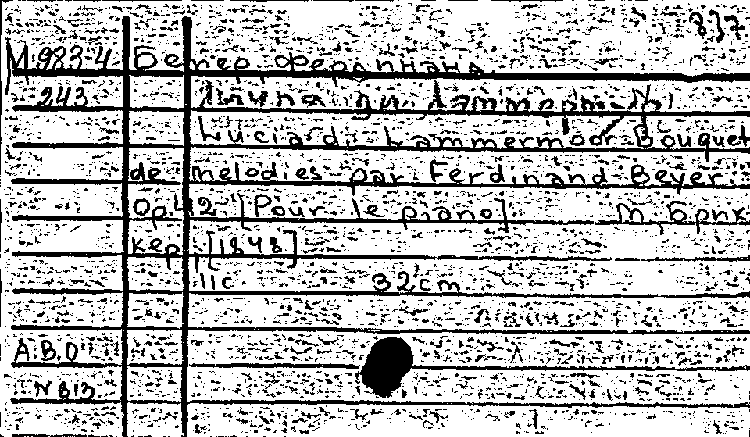 837
М.983-4 Бейер, Фердинанд.
243 Лючия ди Ламмермур
Lucia di Lammermoor. Bouquet
de melodies par Ferdinand Beyer.
Op. 42 [Pour le piano] М, Брик
кер, [1848]
11с. 32cm
А.В.О
N 813